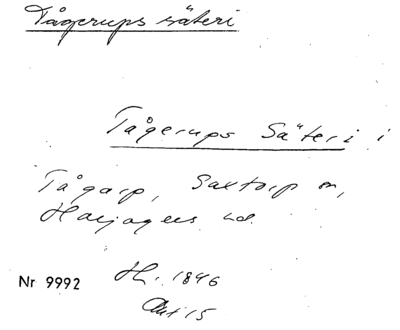 Tågerups säteri
Tågerups Säteri i
Tågarp, Saxtorp sn,
Harjagers hd.
Nr 9992 H. 1846
15